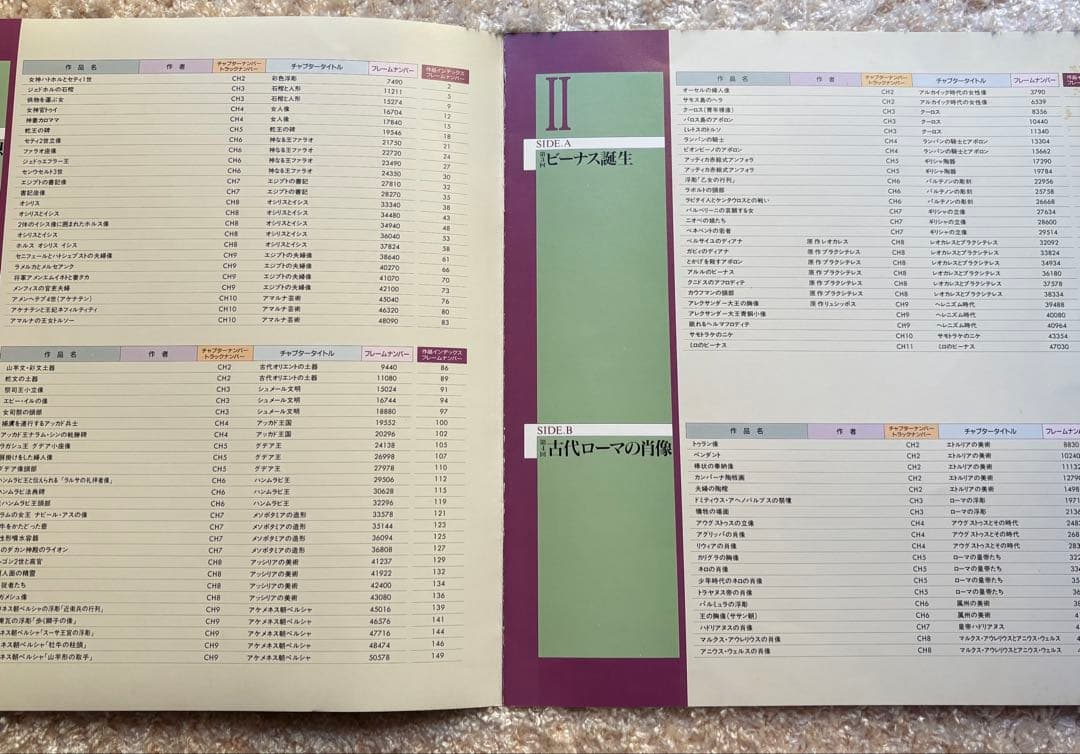 作品名 作者 チャプターナンバー トラックナンバー チャプタータイトル フレームナンバー 作品インデックス フレームナンバー
女神ハトホルとセティ1世 CH2 彩色浮彫 7490 2
ジェドホルの石棺 CH3 石棺と人形 11211 5
供物を運ぶ女 CH3 石棺と人形 15274 9
女神官トゥイ CH4 女人像 16704 12
神妻カロママ CH4 女人像 17840 13
蛇王の碑 CH5 蛇王の碑 19546 15
セティ2世立像 CH6 神なる王ファラオ 21750 18
ファラオ座像 CH6 神なる王ファラオ 22720 21
ジェドゥエフラー王 CH6 神なる王ファラオ 23490 24
センウセルト3世 CH6 神なる王ファラオ 24350 27
エジプトの書記像 CH7 エジプトの書記 27810 30
書記座像 CH7 エジプトの書記 28270 32
オシリス CH8 オシリスとイシス 33340 35
オシリスとイシス CH8 オシリスとイシス 34480 38
2体のイシス像に囲まれたホルス像 CH8 オシリスとイシス 34940 43
オシリスとイシス CH8 オシリスとイシス 36040 48
ホルス オシリス イシス CH8 オシリスとイシス 37824 53
セニフェールとハトシェプストの夫婦像 CH9 エジプトの夫婦像 38640 58
ラメルカとメルセアンク CH9 エジプトの夫婦像 40270 61
将軍アメンエムイネトと妻タカ CH9 エジプトの夫婦像 41070 66
メンフィスの官吏夫婦 CH9 エジプトの夫婦像 42100 70
アメンヘテプ4世(アケナテン) CH10 アマルナ芸術 45040 73
アケナテンと王妃ネフィルティティ CH10 アマルナ芸術 46320 76
アマルナの王女トルソー CH10 アマルナ芸術 48090 80
83
作品名 作者 チャプターナンバー トラックナンバー チャプタータイトル フレームナンバー 作品インデックス フレームナンバー
山羊文・彩文土器 CH2 古代オリエントの土器 9440 86
蛇文の土器 CH2 古代オリエントの土器 11080 89
祭司王小立像 CH3 シュメール文明 15024 91
エビー・イルの像 CH3 シュメール文明 16744 94
女司祭の頭部 CH3 シュメール文明 18880 97
捕虜を連行するアッカド兵士 CH4 アッカド王国 19552 100
アッカド王ナラム・シンの戦勝碑 CH4 アッカド王国 20296 102
ラガシュ王 グデア小座像 CH5 グデア王 24138 105
肩掛けをした婦人像 CH5 グデア王 26998 107
グデア像頭部 CH5 グデア王 27978 110
ハンムラビ王と伝えられる「ラルサの礼拝者像」 CH6 ハンムラビ王 29506 112
ハンムラビ法典碑 CH6 ハンムラビ王 30628 115
ハンムラビ王頭部 CH6 ハンムラビ王 32296 119
ラムの女王 ナピール・アスの像 CH7 メソポタミアの造形 33578 121
牛をかたどった壺 CH7 メソポタミアの造形 35144 123
性形噴水容器 CH7 メソポタミアの造形 36094 125
のダカン神殿のライオン CH7 メソポタミアの造形 36808 127
ゴン2世と高官 CH8 アッシリアの美術 41237 129
人面の精霊 CH8 アッシリアの美術 41922 132
従者たち CH8 アッシリアの美術 42400 134
ガメシュ像 CH8 アッシリアの美術 43080 136
ネス朝ペルシャの浮彫「近衛兵の行列」 CH9 アケメネス朝ペルシャ 45016 139
瓦の浮彫「歩く獅子の像」 CH9 アケメネス朝ペルシャ 46576 141
ネス朝ペルシャ「スーサ王宮の浮彫」 CH9 アケメネス朝ペルシャ 47716 144
ネス朝ペルシャ「牡牛の柱頭」 CH9 アケメネス朝ペルシャ 48474 146
ネス朝ペルシャ「山羊形の取手」 CH9 アケメネス朝ペルシャ 50578 149
II
SIDE.A
第3回 ビーナス誕生
作品名 作者 チャプターナンバー トラックナンバー チャプタータイトル フレームナンバー
オーセルの婦人像 CH2 アルカイック時代の女性像 3790
サモス島のヘラ CH2 アルカイック時代の女性像 6539
クーロス(青年裸像) CH3 クーロス 8356
パロス島のアポロン CH3 クーロス 10440
ミレトスのトルソ CH3 クーロス 11340
ランパンの騎士 CH4 ランパンの騎士とアポロン 13304
ピオンビーノのアポロン CH4 ランパンの騎士とアポロン 15662
アッティカ赤絵式アンフォラ CH5 ギリシャ陶器 17290
アッティカ赤絵式アンフォラ CH5 ギリシャ陶器 19784
浮彫「乙女の行列」 CH6 パルテノンの彫刻 22956
ラボルトの頭部 CH6 パルテノンの彫刻 25758
ラピタイ人とケンタウロスとの戦い CH6 パルテノンの彫刻 26668
バルベリーニの哀願する女 CH7 ギリシャの立像 27634
ニオベの娘たち CH7 ギリシャの立像 28600
ベネベントの若者 CH7 ギリシャの立像 29514
ベルサイユのディアナ 原作レオカレス CH8 レオカレスとプラクシテレス 32092
ガビィのディアナ 原作プラクシテレス CH8 レオカレスとプラクシテレス 33824
とかげを殺すアポロン 原作プラクシテレス CH8 レオカレスとプラクシテレス 34934
アルルのビーナス 原作プラクシテレス CH8 レオカレスとプラクシテレス 36180
クニドスのアフロディテ 原作プラクシテレス CH8 レオカレスとプラクシテレス 37578
カウフマンの頭部 原作プラクシテレス CH8 レオカレスとプラクシテレス 38334
アレクサンダー大王の胸像 原作リュシッポス CH9 ヘレニズム時代 39488
アレクサンダー大王青銅小像 CH9 ヘレニズム時代 40080
眠れるヘルマフロディテ CH9 ヘレニズム時代 40964
サモトラケのニケ CH10 サモトラケのニケ 43354
ミロのビーナス CH11 ミロのビーナス 47030
SIDE.B
第4回 古代ローマの肖像
作品名 作者 チャプターナンバー トラックナンバー チャプタータイトル フレームナン
トゥラン像 CH2 エトルリアの美術 8830
ペンダント CH2 エトルリアの美術 10240
棒状の奉納像 CH2 エトルリアの美術 11132
カンパーナ陶板画 CH2 エトルリアの美術 1279
夫婦の陶棺 CH2 エトルリアの美術 1498
ドミティウス・アヘノバルブスの祭壇 CH3 ローマの浮彫 1971
犠牲の場面 CH3 ローマの浮彫 2136
アウグストゥスの立像 CH4 アウグストゥスとその時代 248
アグリッパの肖像 CH4 アウグストゥスとその時代 268
リウィアの肖像 CH4 アウグストゥスとその時代 283
カリグラの胸像 CH5 ローマの皇帝たち 322
ネロの肖像 CH5 ローマの皇帝たち
少年時代のネロの肖像 CH5 ローマの皇帝たち
トラヤヌス帝の肖像 CH5 ローマの皇帝たち
パルミュラの浮彫 CH6 属州の美術
王の胸像(ササン朝) CH6 属州の美術
ハドリアヌスの肖像 CH7 皇帝ハドリアヌス
マルクス・アウレリウスの肖像 CH8 マルクス・アウレリウスとアニウス・ウェルス
アニウス・ウェルスの肖像 CH8 マルクス・アウレリウスとアニウス・ウェルス